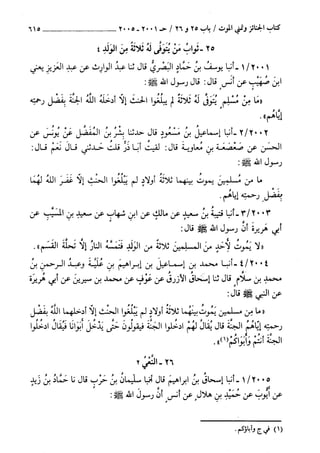 كتاب الجنائز وتمني الموت / باب ٢٥ و ٢٦ / حـ ٢٠٠١ - ٢٠٠٥ ٦١٥
٢٥ - ثَوابُ مَنْ يُتَوَفَّى لَهُ ثَلاثَةٌ مِنَ الوَلَدِ ٤
١/٢٠٠١ - أنبا يوسفُ بنُ حمَّادٍ البَصْريُّ قال ثنا عبدُ الوارثِ عن عبدِ العزيزِ يعني
ابنَ صُهَيْبٍ عن أنَسٍ قال: قال رسولُ اللهِ ﷺ:
«مَا مِنْ مُسْلِمٍ يُتَوَفَّى لَهُ ثَلاثَةٌ لم يَبْلُغُوا الحِنْثَ إلَّا أدْخَلَهُ اللَّهُ الجَنَّةَ بِفَضْلِ رحمتِهِ
إيَّاهُم».
٢/٢٠٠٢ - أنبا إسماعيلُ بنُ مَسْعُودٍ قال حدثنا بِشْرُ بنُ المُفَضَّلِ عَنْ يُونُسَ عن
الحسَنِ عن صَعْصَعَةَ بنِ مُعاويةَ قال: لَقِيتُ أبَا ذَرٍّ قلتُ حَدِّثني قالَ نَعَمْ قال:
رسولُ الله ﷺ:
ما من مُسلِمَينِ يموتُ بينهما ثلاثةُ أولادٍ لم يَبْلُغُوا الحِنْثَ إلَّا غَفَرَ اللهُ لهُمَا
بِفَضْلِ رحمتِهِ إيَّاهُم.
٣/٢٠٠٣ - أنبا قتيبةُ بنُ سعيدٍ عن مالكٍ عن ابنِ شهابٍ عن سعيدِ بنِ المسيَّبِ عن
أبي هُريرةَ أنَّ رسولَ اللهِ ﷺ قال:
«لا يَمُوتُ لأحَدٍ مِنَ المسلمينَ ثَلاثَةٌ من الوَلَدِ فَتَمَسَّهُ النارُ إلَّا تَحِلَّةَ القَسَمِ».
٤/٢٠٠٤ - أنبا محمد بن إسماعيل بنِ إبراهيم بنِ عُلَيَّةَ وعبدُ الرحمنِ بنُ
محمدِ بنِ سَلَّامٍ قال ثنا إسحَاقُ الأزرَقُ عن عَوْفٍ عن محمد بن سيرينَ عن أبي هُرَيْرَةَ
عنِ النبيِّ ﷺ قال:
«ما مِن مسلمينِ يَمُوتُ بينَهُما ثلاثةُ أولادٍ لم يَبْلُغُوا الحِنْثَ إلَّا أدخلهما اللَّهُ بِفَضْلِ
رحمتِهِ إيَّاهُم الجنةَ قال يُقالُ لهُم ادخلوا الجَنَّةَ فيقولونَ حتَّى يَدْخُلَ أبَوَانَا فَيُقَالُ ادخُلوا
الجنةَ أنتُم وأبَواكُم(١)».
٢٦ - النَّعْيُ ٢
١/٢٠٠٥ - أنبا إسحَاقُ بنُ إبراهيمَ قال أنبأ سليمانُ بنُ حَرْبٍ قال نا حمَّادُ بنُ زَيدٍ
عن أيُّوبَ عن حُمَيْدِ بنِ هلالٍ عن أنسٍ أن رسولَ الله ﷺ:
(١) في ج وآباؤكم.